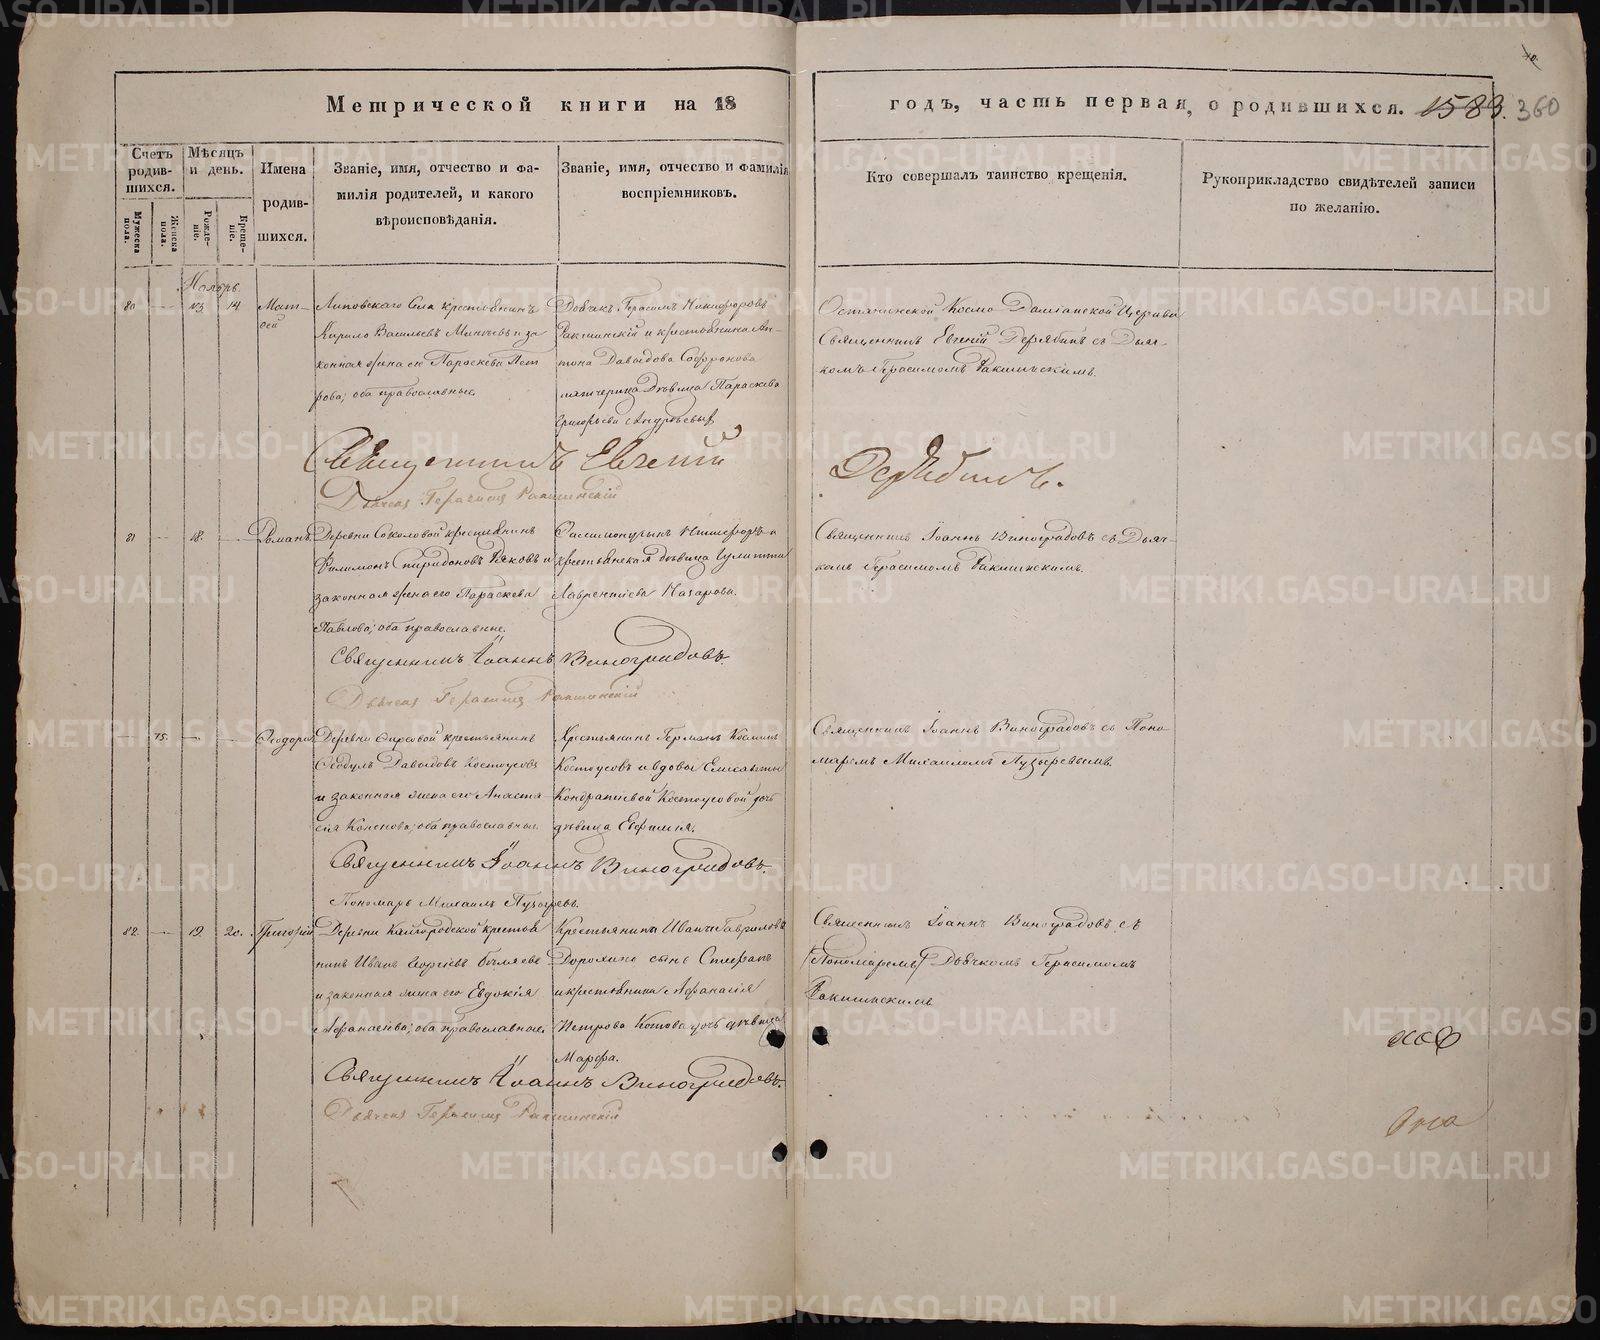 Метрической книги на 18
годъ, часть первая, о родившихся. 1583. 360
Счетъ родив-шихся.
Мужеска пола.
Женска пола.
Мѣсяцъ и день.
Рожде-ніе.
Креще-ніе.
Имена
родив-
шихся.
Званіе, имя, отчество и фа-
милія родителей, и какого
вѣроисповѣданія.
Званіе, имя, отчество и фамилія
воспріемниковъ.
Кто совершалъ таинство крещенія.
Рукоприкладство свидѣтелей записи
по желанію.
Ноябрь
80 13 14 Мат-
ѳей
Липовскаго Села крестьянинъ
Кирило Васильевъ и за
конная жена его Параскева Пет
рова; оба православные.
Дьячекъ Герасимъ Никифоровъ
Ракшинскій и крестьянина Ан-
тона Давыдова Софронова
падчерица Дѣвица Параскева
Григорьева Андреевыхъ
Космо Даміанской Церкви
Священникъ Евгеній Дерябинъ съ Дьяч-
комъ Герасимомъ Ракшинскимъ.
Священникъ Евгеній Дерябинъ.
Дьячекъ Герасимъ Ракшинскій
81 18. Романъ
Деревни Соколовой крестьянинъ
Филимонъ Спиридоновъ и
законная жена его Параскева
Павлова; оба православные.
крестьянская дѣвица Іулитта
Лаврентіева Назарова.
Священникъ Іоаннъ Виноградовъ съ Дьяч-
комъ Герасимомъ Ракшинскимъ.
Священникъ Іоаннъ Виноградовъ.
Дьячекъ Герасимъ Ракшинскій
75. Ѳеодора
Деревни крестьянинъ
Ѳеодулъ Давыдовъ Костоусовъ
и законная жена его Анаста
сія; оба православные.
Крестьянинъ Германъ Косминъ
Костоусовъ и вдовы Елисаветы
Кондратіевой Костоусовой дочь
дѣвица Евфимія.
Священникъ Іоаннъ Виноградовъ съ Поно-
маремъ Михаиломъ Пузыревымъ.
Священникъ Іоаннъ Виноградовъ.
Пономарь Михаилъ Пузыревъ.
82. 19. 20. Григорій
Деревни Кайгородской крестья
нинъ Иванъ Георгіевъ
и законная жена его Евдокія
Афанасіева; оба православные.
Крестьянина Ивана Гаврилова
Дорохина сынъ Стефанъ
и крестьянина Афанасія
Петрова Котова дочь дѣвица
Марфа.
Священникъ Іоаннъ Виноградовъ съ
(Пономаремъ) Дьячкомъ Герасимомъ
Ракшинскимъ
Священникъ Іоаннъ Виноградовъ.
Дьячекъ Герасимъ Ракшинскій
METRIKI.GASO-URAL.RU